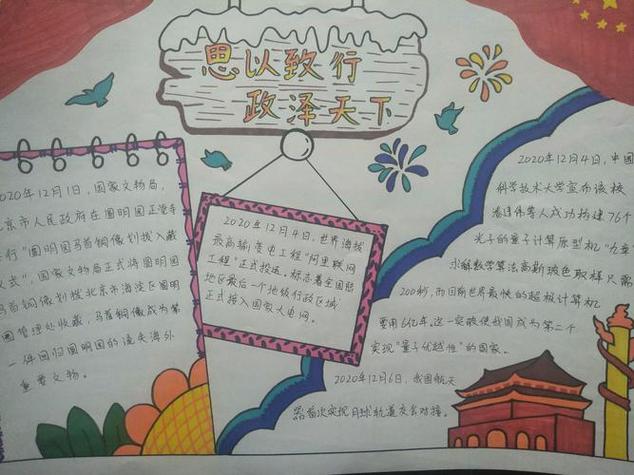 思以致行
政泽天下
2020年12月1日,国家文物局,
北京市人民政府在圆明园正觉寺
举行"圆明园马首铜像划拨入藏
仪式"。国家文物局正式将圆明园
马首铜像划拨北京市海淀区圆明
园管理处收藏,马首铜像成为第
一件回归圆明园的流失海外
重要文物。
2020年12月4日,世界海拔
最高输变电工程"阿里联网
工程"正式投运。标志着全国陆
地区最后一个地级行政区域
正式接入国家大电网。
2020年12月4日,中国
科学技术大学宣布该校
潘建伟等人成功构建76个
光子的量子计算原型机"九章"
求解数学算法高斯玻色取样只需
200秒,而目前世界最快的超级计算机
要用6亿年。这一突破使我国成为第二个
实现"量子优越性"的国家。
2020年12月6日,我国航天
器首次实现月球轨道交会对接。